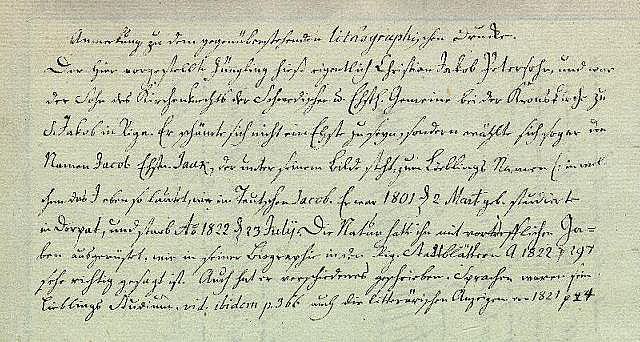 Anmerkung zu dem gegenüberstehenden lithographischen Drucke.
Der hier vorgestellte Jüngling hieß eigentlich Christian Jakob Petersohn, und war
der Sohn des Kirchenknechts der Schwedischen u. Ehstn. Gemeine bei der Kronskirche zu
St. Jakob in Riga. Er schämte sich nicht ein Ehste zu seyn, sondern wählte sich sogar den
Namen Jacob Ehstn. Jaak, der unter seinem Bilde steht, zum Lieblings Namen (: in wel-
chem das J eben so lautet, wie im Teutschen Jacob. Er war 1801 d 2 Mart. geb. studierte
in Dorpat, und starb Ao 1822 d 23 July. Die Natur hatte ihn mit vortrefflichen Ga-
ben ausgerüstet, wie in seiner Biographie in den Rig. Stadtblättern A 1822 p 297
sehr richtig gesagt ist. Auch hat er verschiedenes geschrieben. Sprachen waren sein
Lieblings Studium. vid. ibidem p. 366 auch die litterärischen Anzeigen von 1821 p